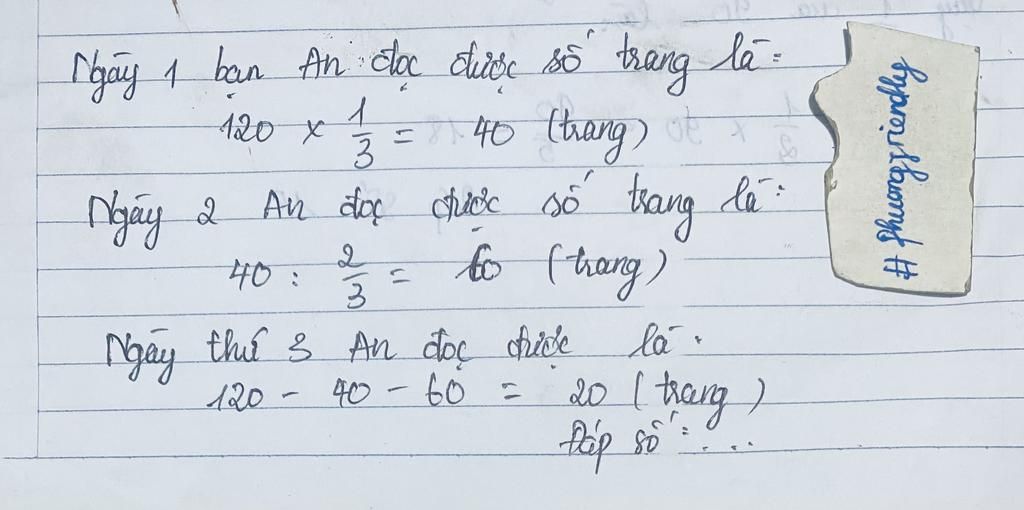 Ngày 1 bạn An đọc được số trang là:
120 × 1/3 = 40 (trang)
Ngày 2 An đọc được số trang là:
40 : 2/3 = 60 (trang)
Ngày thứ 3 An đọc được là:
120 - 40 - 60 = 20 (trang)
Đáp số: ....